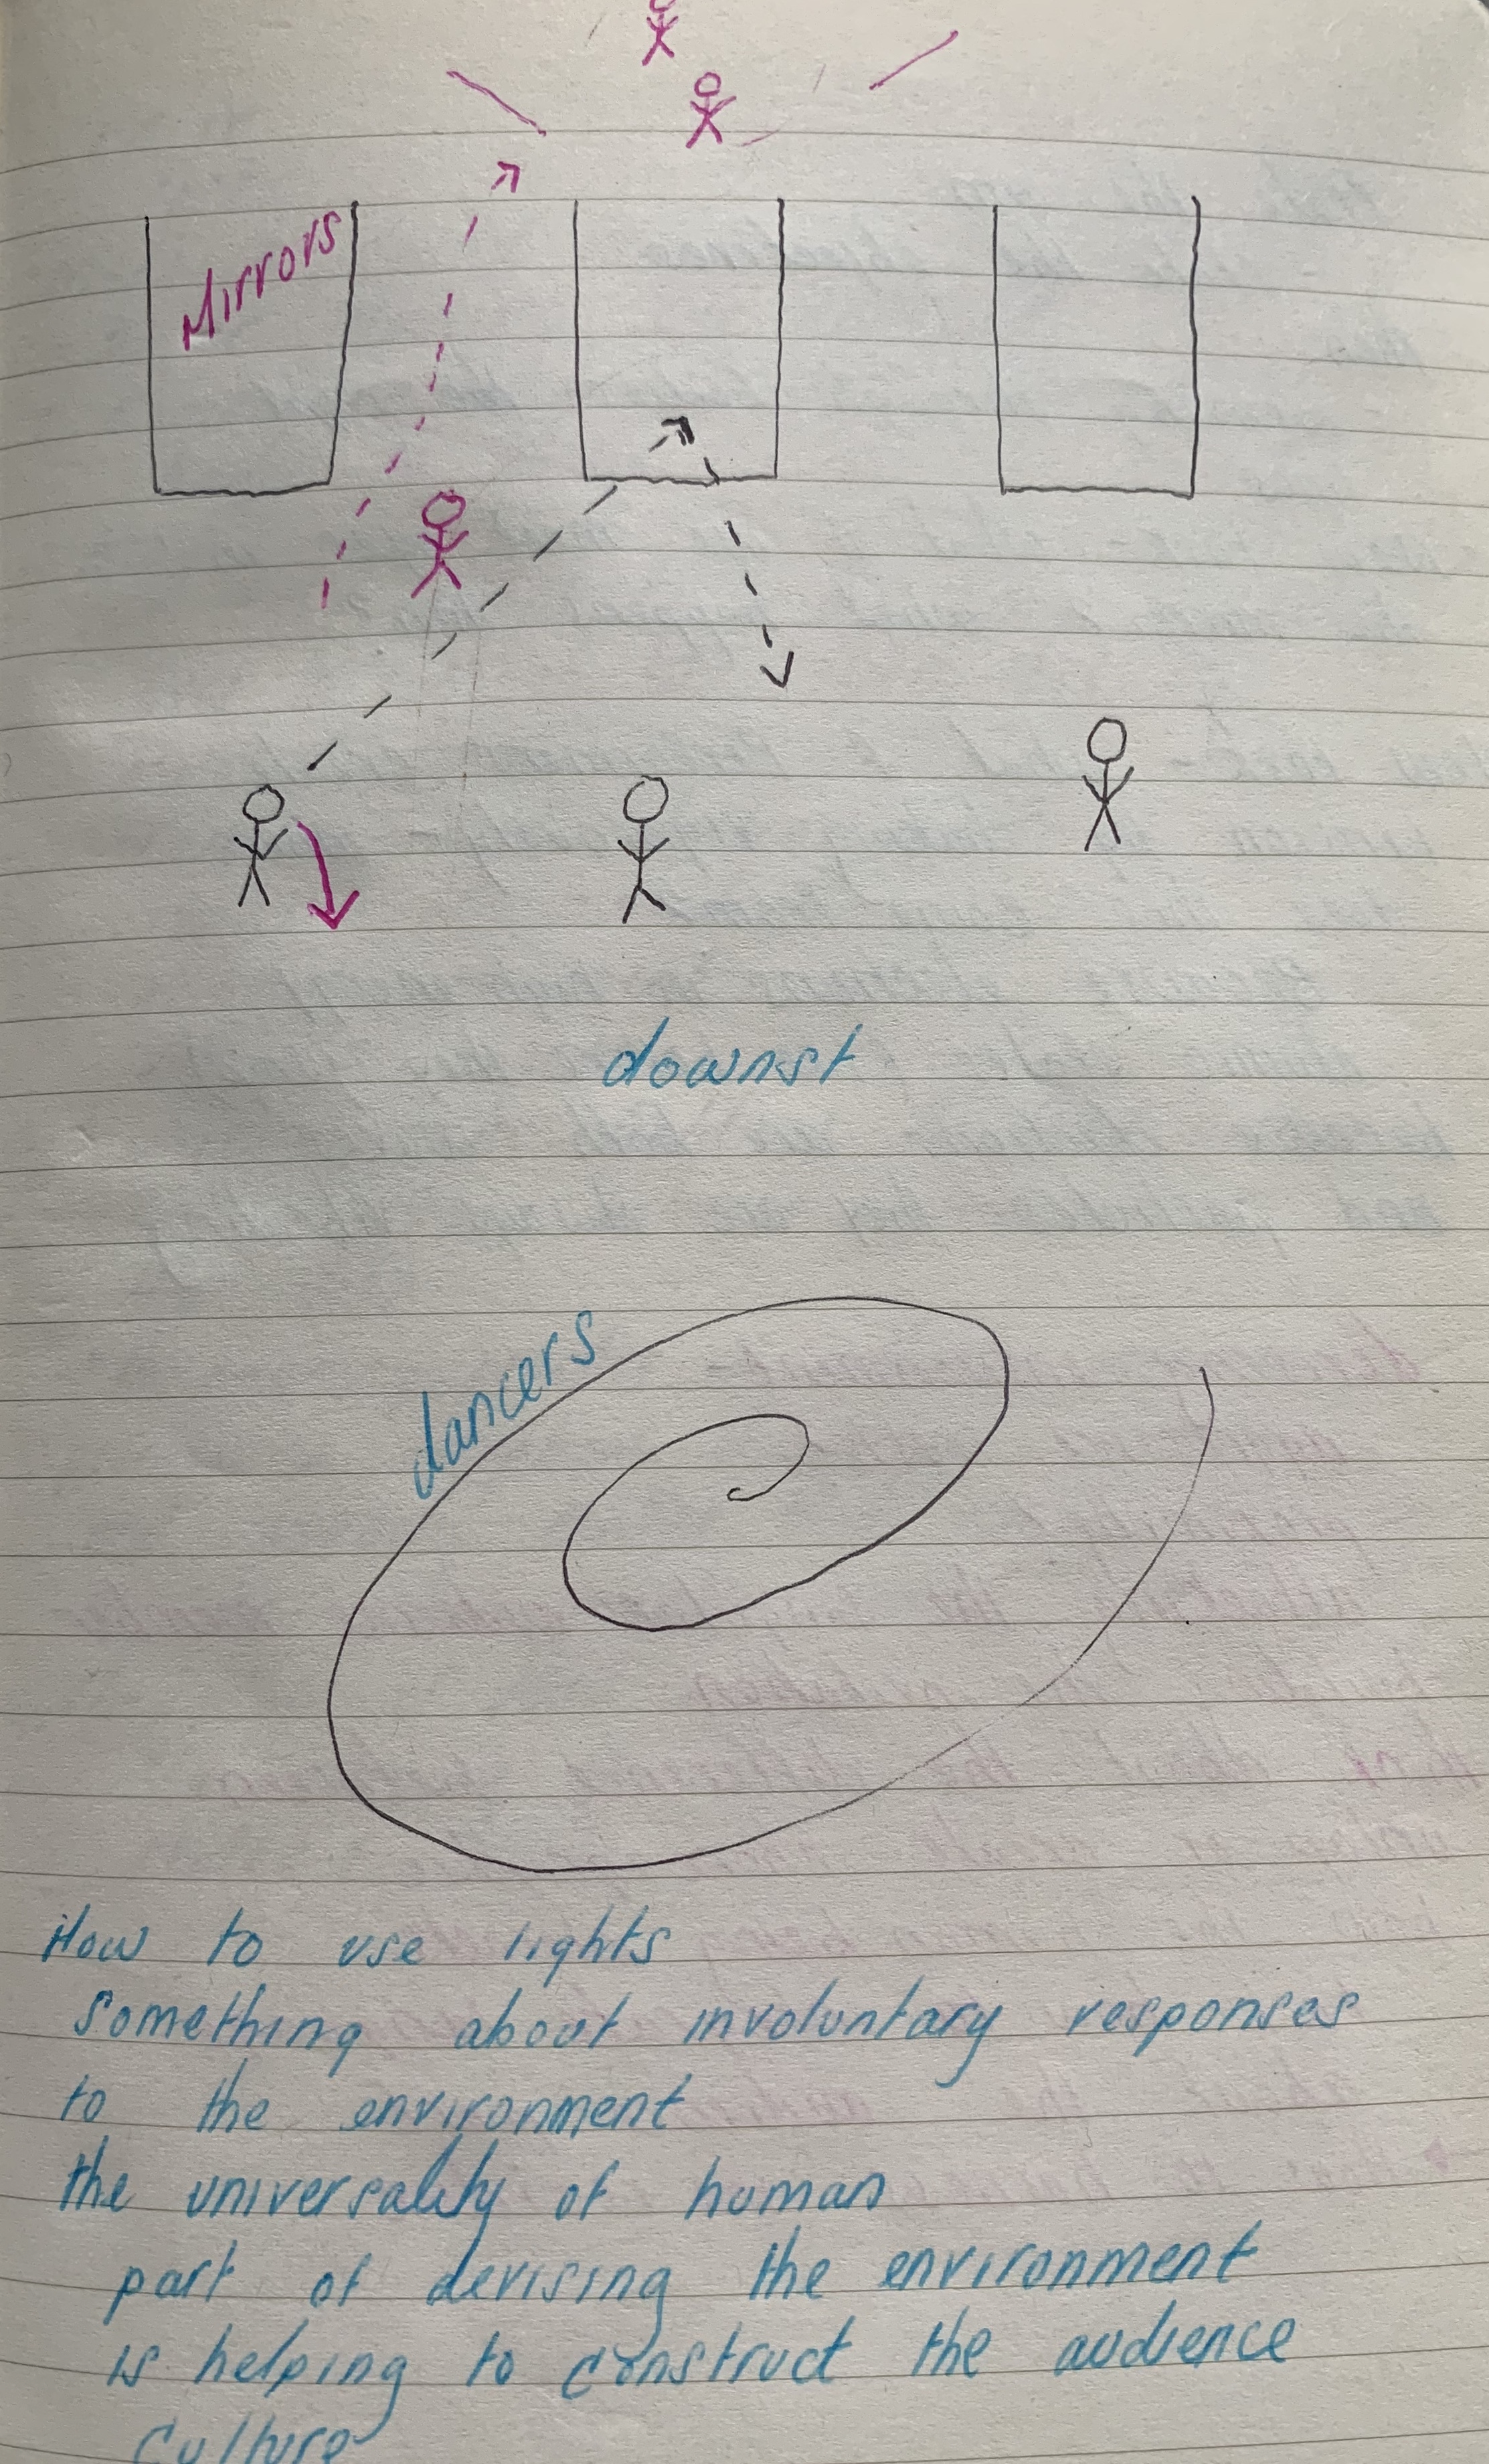 Mirrors
downst
dancers
How to use lights
something about involuntary responses
to the environment
the universality of human
part of devising the environment
is helping to construct the audience
culture